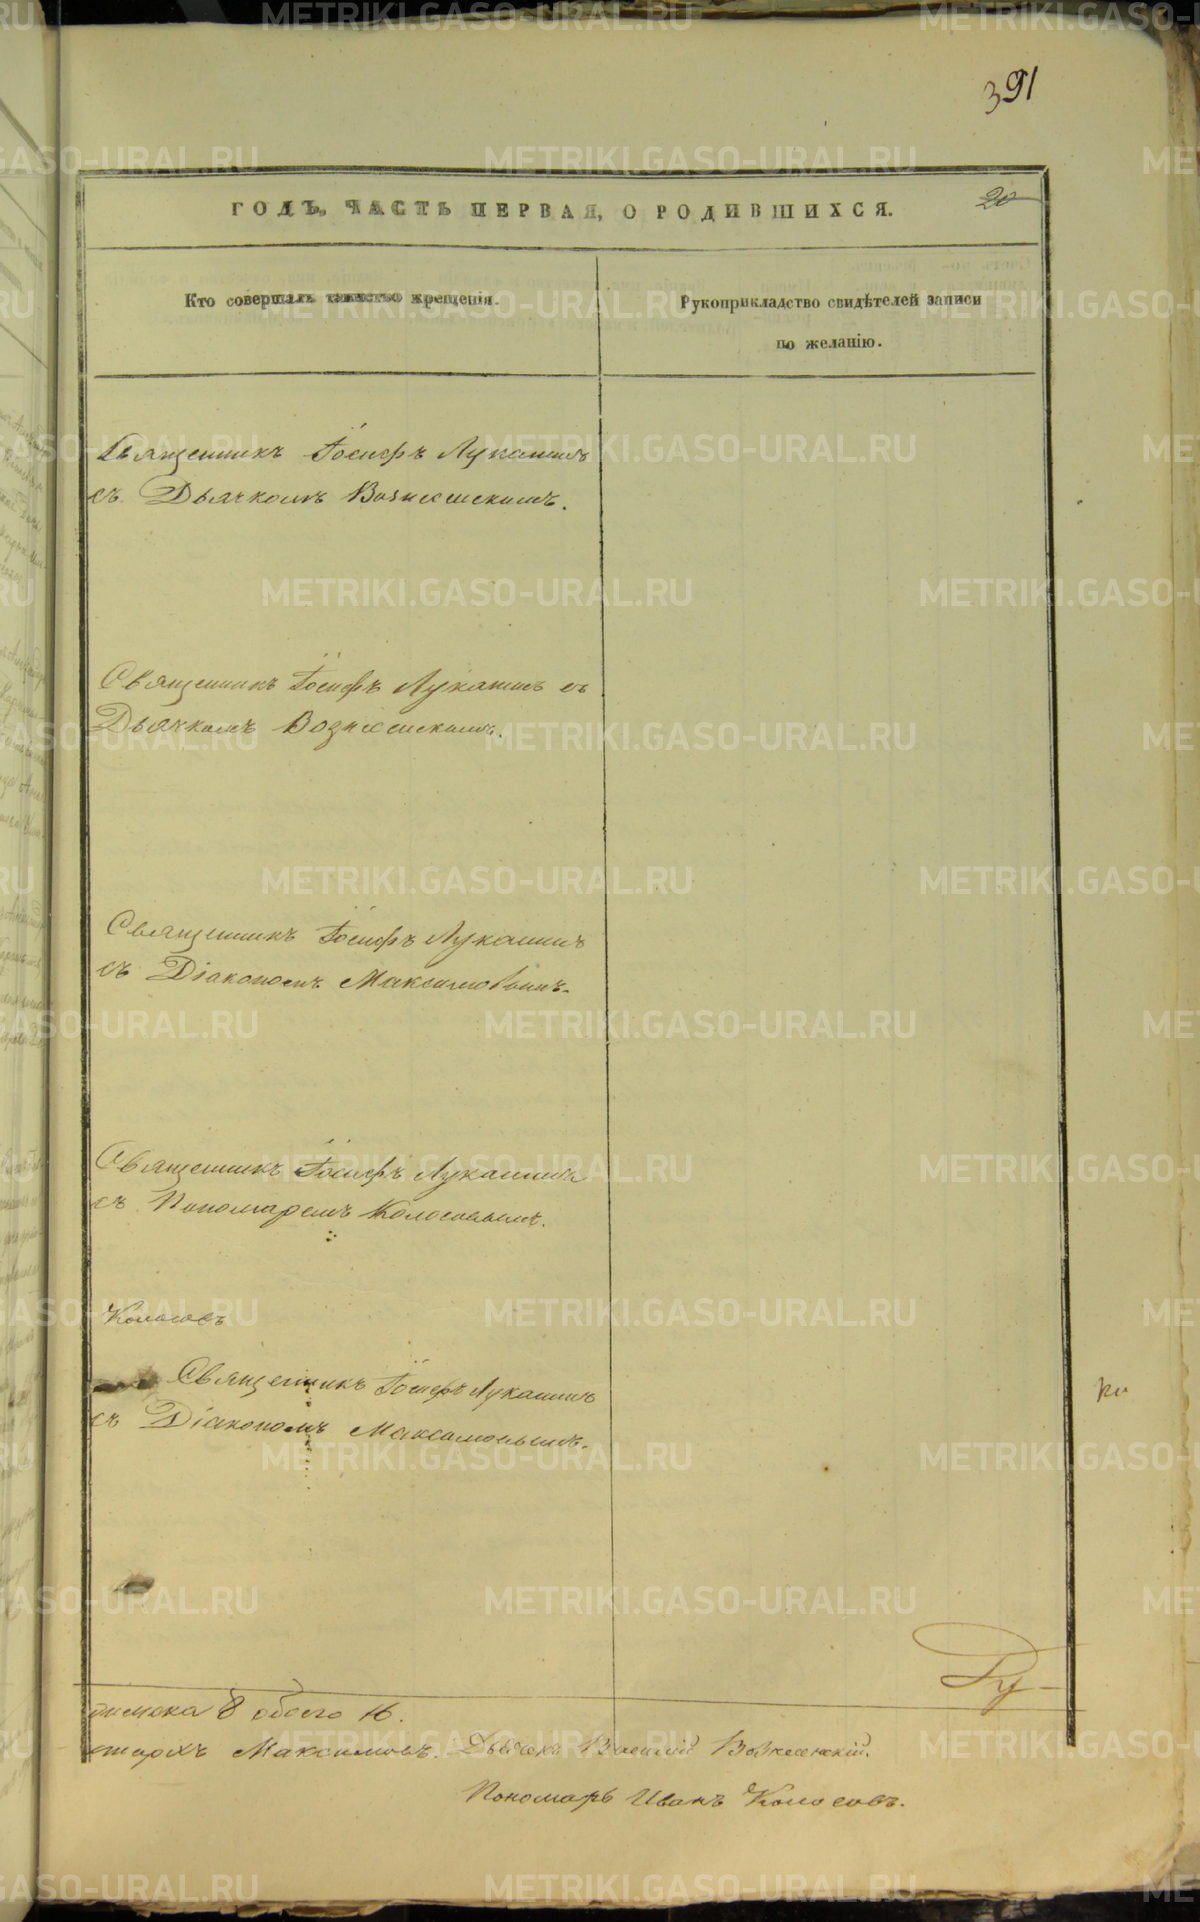 391
ГОДЪ, ЧАСТЬ ПЕРВАЯ, О РОДИВШИХСЯ.
20
Кто совершалъ таинство крещенія.
Рукоприкладство свидѣтелей записи
по желанію.
Священникъ Іосифъ Лукашинъ
съ Дьячкомъ Вознесенскимъ.
Священникъ Іосифъ Лукашинъ съ
Дьячкомъ Вознесенскимъ.
Священникъ Іосифъ Лукашинъ
съ Діакономъ Максимовымъ.
Священникъ Іосифъ Лукашинъ
съ Пономаремъ Колосовымъ.
Колосовъ
Священникъ Іосифъ Лукашинъ
съ Діакономъ Максимовымъ.
8 обоего 16.
Максимовъ. Дьячекъ Василій Вознесенскій.
Пономарь Иванъ Колосовъ.
METRIKI.GASO-URAL.RU